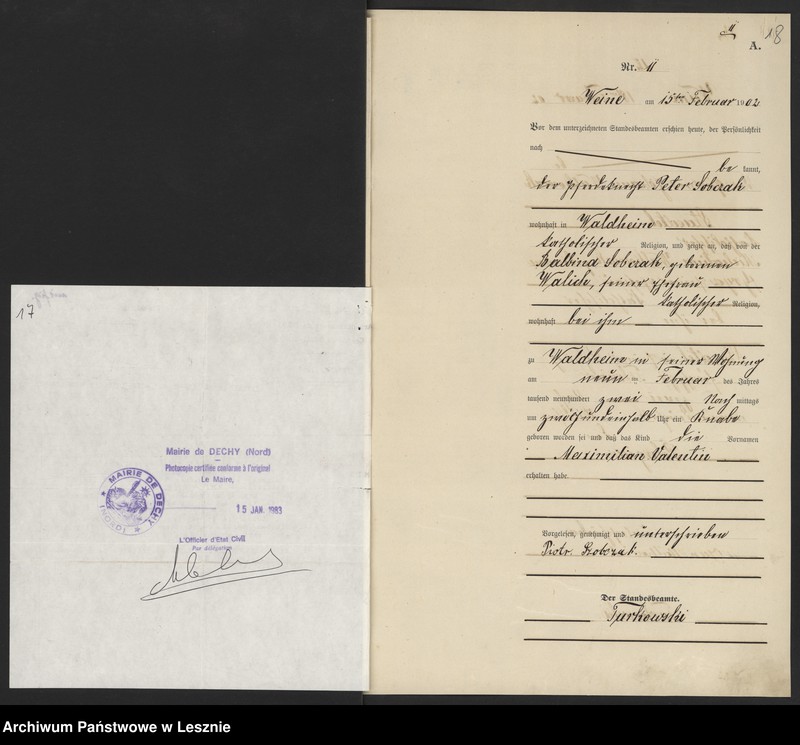 17
Mairie de DECHY (Nord)
Photocopie certifiée conforme à l'original
Le Maire,
MAIRIE DE DECHY
(NORD)
15 JAN. 1983
L'Officier d'Etat Civil
Par délégation
18
A.
Nr. 11
Weine am 15ten Februar 1902
Vor dem unterzeichneten Standesbeamten erschien heute, der Persönlichkeit
nach
be kannt,
der Pferdeknecht Peter Sobczak
wohnhaft in Waldheim
katholischer Religion, und zeigte an, daß von der
Balbina Sobczak, geborenen
Walich, seiner Ehefrau
katholischer Religion,
wohnhaft bei ihm
zu Waldheim in seiner Wohnung
am neun ten Februar des Jahres
tausend neunhundert zwei Nach mittags
um zwölf und einhalb Uhr ein Knabe
geboren worden sei und daß das Kind die Vornamen
Maximilian Valentin
erhalten habe.
Vorgelesen, genehmigt und unterschrieben
Piotr Sobczak.
Der Standesbeamte.
Turkowski
Archiwum Państwowe w Lesznie